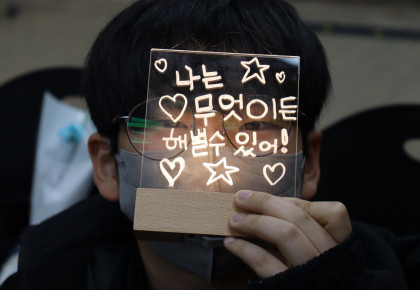 나는
무엇이든
해낼수 있어!